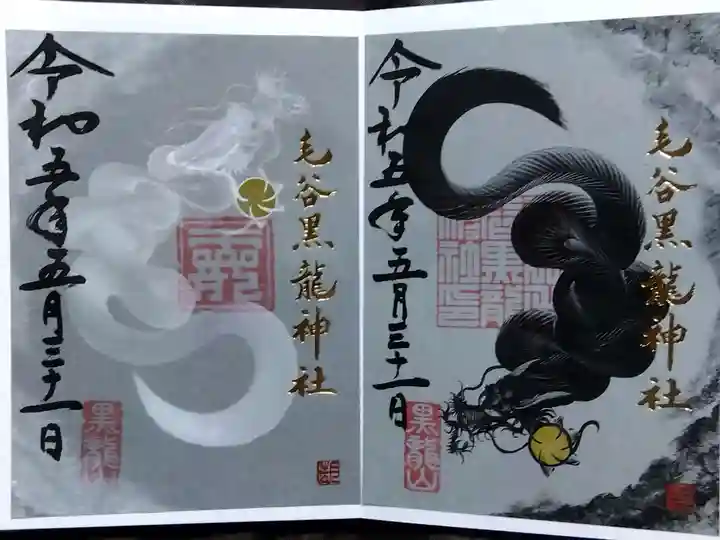 令和五年五月三十一日
毛谷黒龍神社
黒龍山
令和五年五月三十一日
毛谷黒龍神社
黒龍山